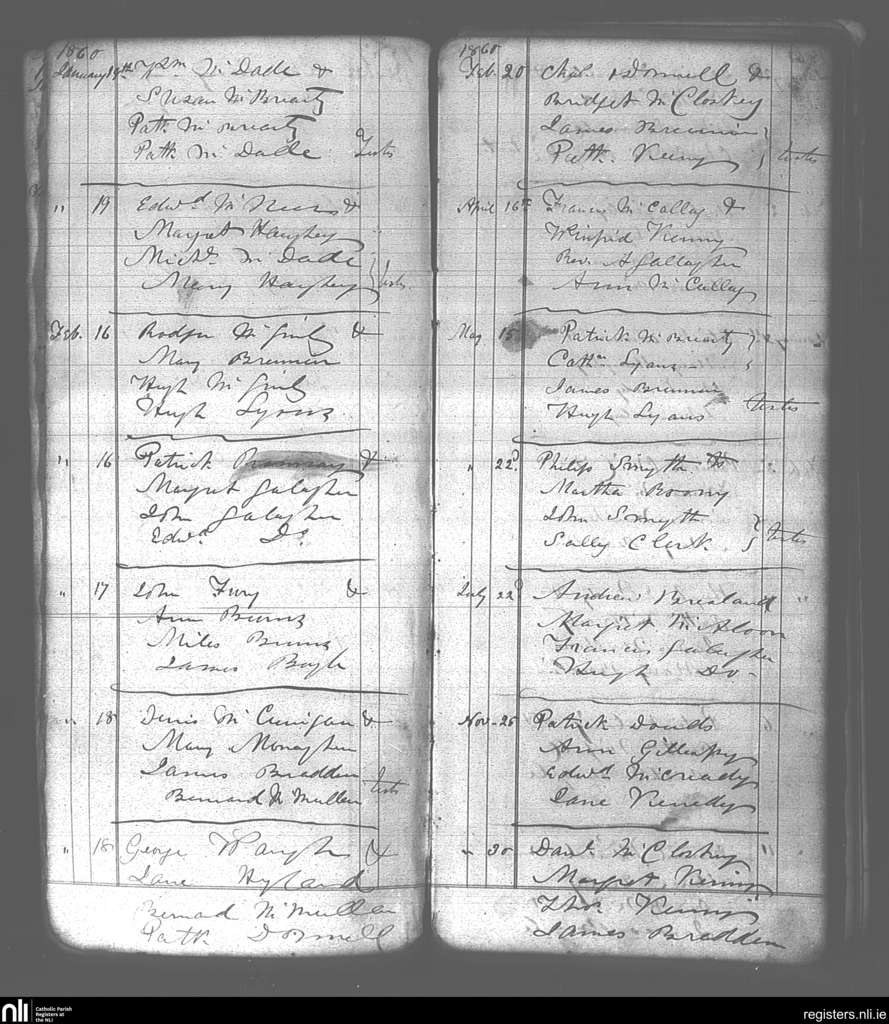 1860
January 18th Wm. McDade &
Susan McBrearty
Patk. McBrearty
Patk. McDade Testes
" 19 Edwd. McNeers &
Margret Haughey
Michl. McDade
Mary Haughey } testes
Feb. 16 Rodger McGinly &
Mary Brennan
Hugh McGinly
Hugh Lyons
" 16 Patrick Ramsay &
Margret Galagher
John Galagher
Edwd. Do.
" 17 John Fury &
Ann Burns
Miles Burns
James Boyle
" 18 Denis McCunigan &
Mary Monaghan
James Bradden
Bernard McMullen testes
" 18 George Waugh &
Jane Hyland
Bernard McMullen
Patk. Donnell
1860
Feb. 20 Chas. O'Donnell &
Bridget McCloskey
James Brennan
Patk. Kenny } testes
April 16th Francis McCallog &
Winifrid Kenny
Rev. A Gallagher
Ann McCallog
May 15 Patrick McBrearty }
Cathn Lyons
James Brennan
Hugh Lyons testes
" 22d. Philip Smyth to
Martha
John Smyth
Sally Clerk } testes
July 22d Andrew Brealand "
Margret McAloon
Francis Galagher
Hugh Do
Nov. 25 Patrick Dowds
Ann Gillespy
Edwd. McCready
Jane Kenedy
" 30 Danl. McCloskey "
Margret Kenny
Thos. Kenny
James Bradden
nli Catholic Parish
Registers at
the NLI
registers.nli.ie